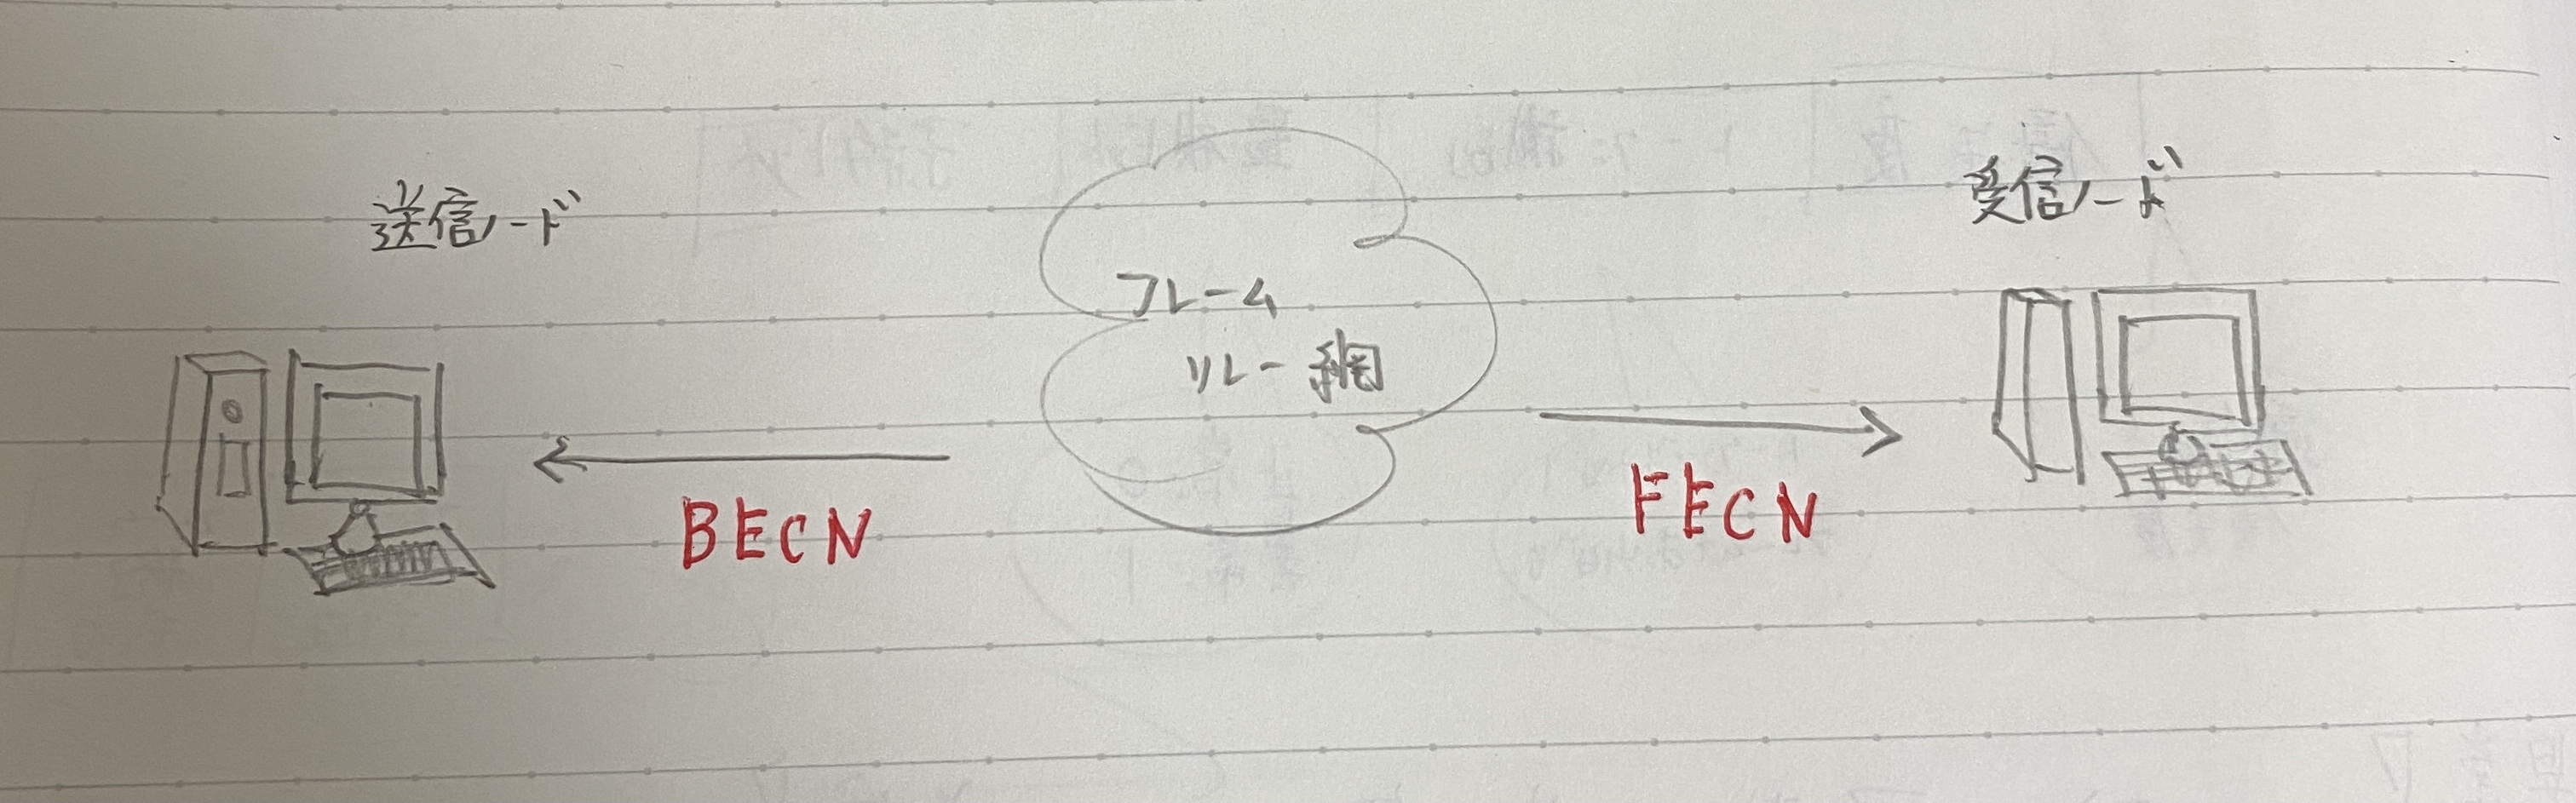 送信ノード
受信ノード
フレーム
リレー網
BECN
FECN